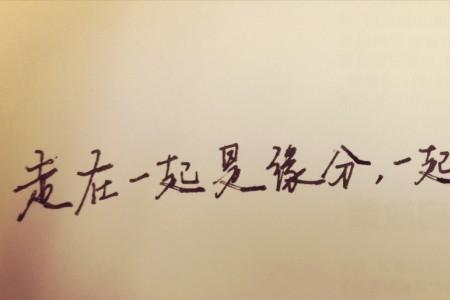 走在一起是缘分,一起